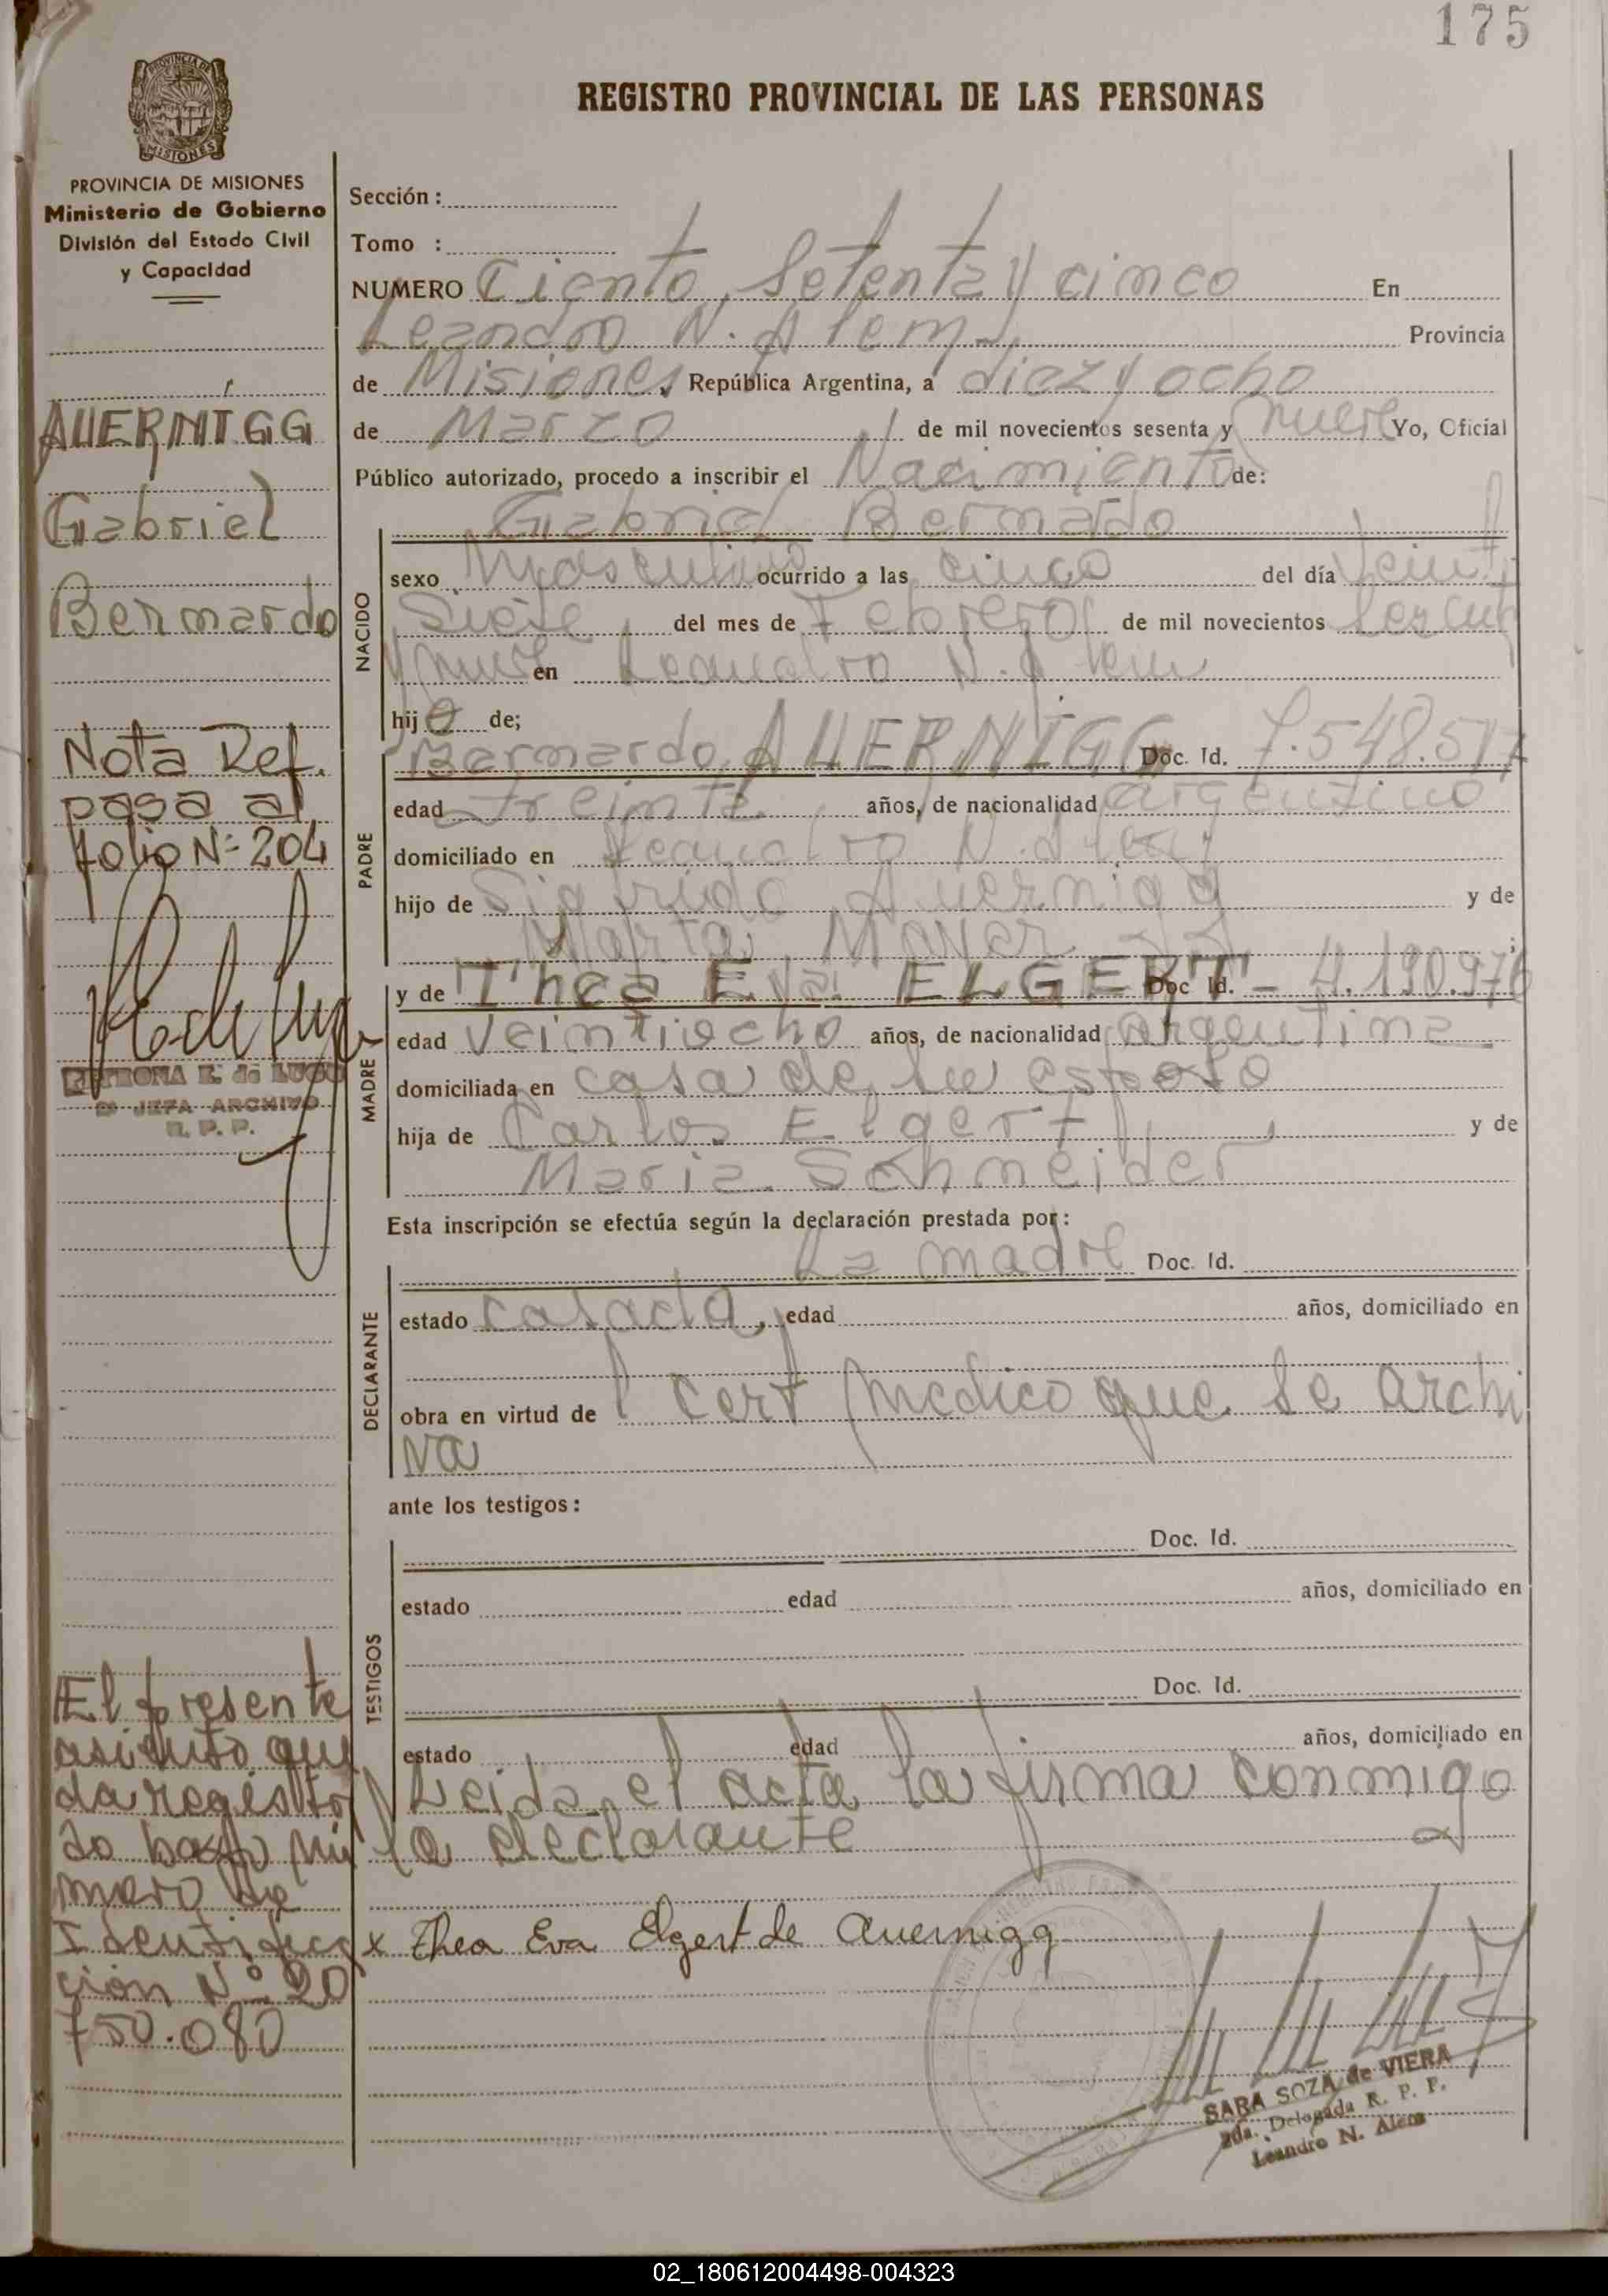 175
REGISTRO PROVINCIAL DE LAS PERSONAS
MISIONES
PROVINCIA DE MISIONES
Ministerio de Gobierno
División del Estado Civil
y Capacidad
AUERNIGG
Gabriel
Bernardo
Nota Ref.
pasa al
folio Nº 204
PETRONA E. de LUGO
JEFA ARCHIVO
R. P. P.
El presente
asiento que
da registra
do bajo nú
mero de
Identifica
ción Nº 20
750.080
Sección :
Tomo :
NUMERO Ciento Setenta y cinco En
Leandro N. Alem Provincia
de Misiones, República Argentina, a diez y ocho
de Marzo de mil novecientos sesenta y nueve Yo, Oficial
Público autorizado, procedo a inscribir el Nacimiento de:
NACIDO
Gabriel Bernardo
sexo Masculino ocurrido a las cinco del día Veinti
Siete del mes de Febrero de mil novecientos Sesenta
y nueve en Leandro N. Alem
hijo de;
PADRE
Bernardo AUERNIGG Doc. Id. 7.548.517
edad treinta años, de nacionalidad argentino
domiciliado en Leandro N. Alem
hijo de Sigfrido Auernigg y de
Marta Mayer ;
MADRE
y de Thea Eva ELGERT Doc Id. - 4.190.976
edad Veintiocho años, de nacionalidad Argentina
domiciliada en casa de su esposo
hija de Carlos Elgert y de
Maria Schneider
Esta inscripción se efectúa según la declaración prestada por:
DECLARANTE
La madre Doc. Id.
estado casada, edad años, domiciliado en
obra en virtud de Cert medico que se archi
va
ante los testigos:
TESTIGOS
Doc. Id.
estado edad años, domiciliado en
Doc. Id.
estado edad años, domiciliado en
Leida el acta la firma conmigo
la declarante
x Thea Eva Elgert de Auernigg
SARA SOZA de VIERA
2da. Delegada R. P. P.
Leandro N. Alem
02_180612004498-004323